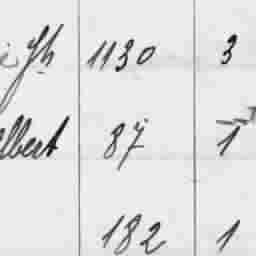 1130 3
lbert 87 1
182 1